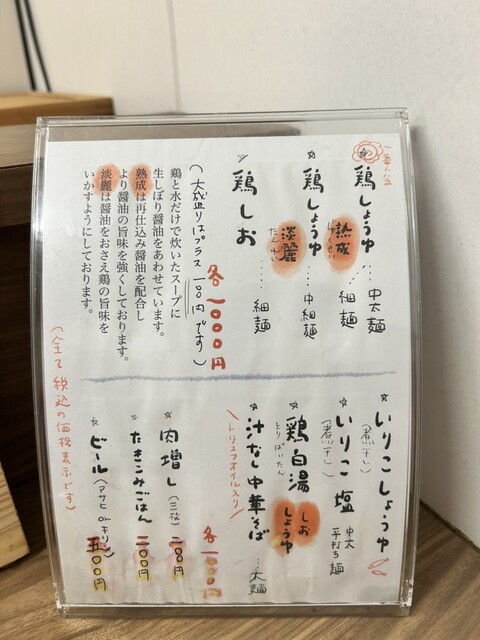 一番人気
鶏しょうゆ 熟成 じゅくせい …… 中太麺 細麺
鶏しょうゆ 淡麗 たんれい …… 中細麺
鶏しお …… 細麺
各一〇〇〇円
(大盛りはプラス一〇〇円です)
鶏と水だけで炊いたスープに
生しぼり醤油をあわせています。
熟成は再仕込み醤油を配合し
より醤油の旨味を強くしております。
淡麗は醤油をおさえ鶏の旨味を
いかすようにしております。
いりこしょうゆ
(煮干し)
いりこ塩 中太 平打ち麺
(煮干し)
鶏白湯 しお しょうゆ
とりぱいたん
汁なし中華そば …太麺
\トリュフオイル入り/
各一〇〇〇円
肉増し(三枚) 二〇〇円
たきこみごはん 二〇〇円
ビール(アサヒ orキリン) 五〇〇円
(全て税込の価格表示です)